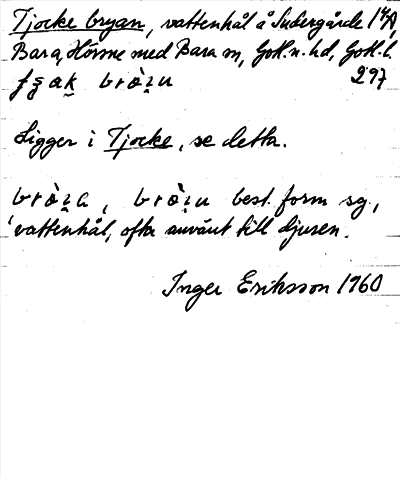 Tjocke bryan, vattenhål å Sudergårde 1⁴A,
Bara, Hörsne med Bara sn, Gotl. n. hd, Gotl. l.
297
Ligger i Tjocke, se detta.
best. form sg.,
'vattenhål, ofta använt till djuren.
Inger Eriksson 1960